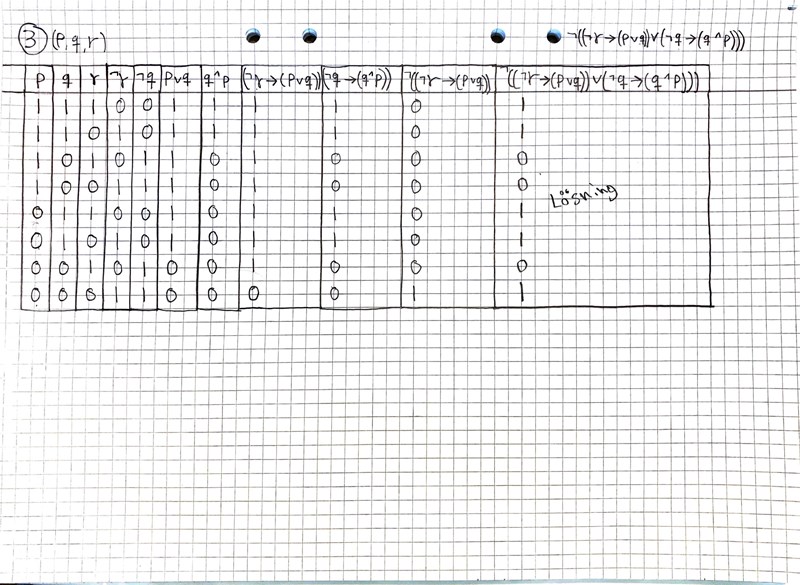 3 (p,q,r) ¬((¬r→(p∨q))∨(¬q→(q^p)))
p q r ¬r ¬q p∨q q^p (¬r→(p∨q)) (¬q→(q^p)) ¬((¬r→(p∨q)) ¬((¬r→(p∨q))∨(¬q→(q^p)))
1 1 1 0 0 1 1 1 1 0 1
1 1 0 1 0 1 1 1 1 0 1
1 0 1 0 1 1 0 1 0 0 0
1 0 0 1 1 1 0 1 0 0 0
Lösning
0 1 1 0 0 1 0 1 1 0 1
0 1 0 1 0 1 0 1 1 0 1
0 0 1 0 1 0 0 1 0 0 0
0 0 0 1 1 0 0 0 0 1 1